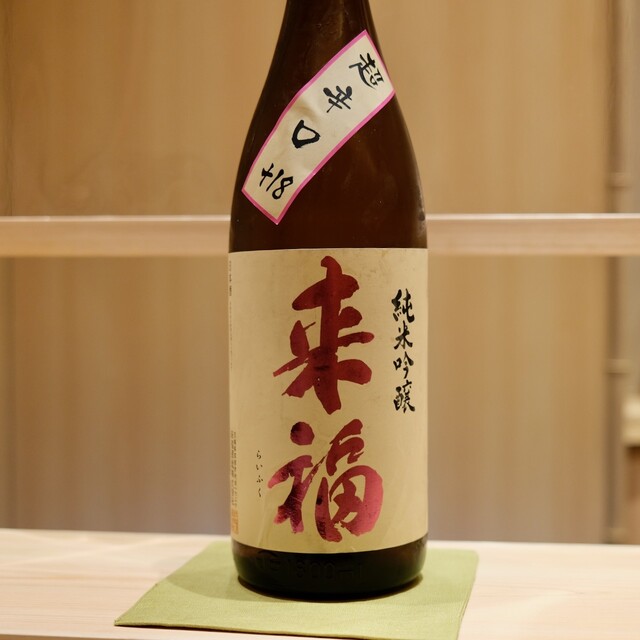 超辛口 +18
純米吟醸
来福
らいふく